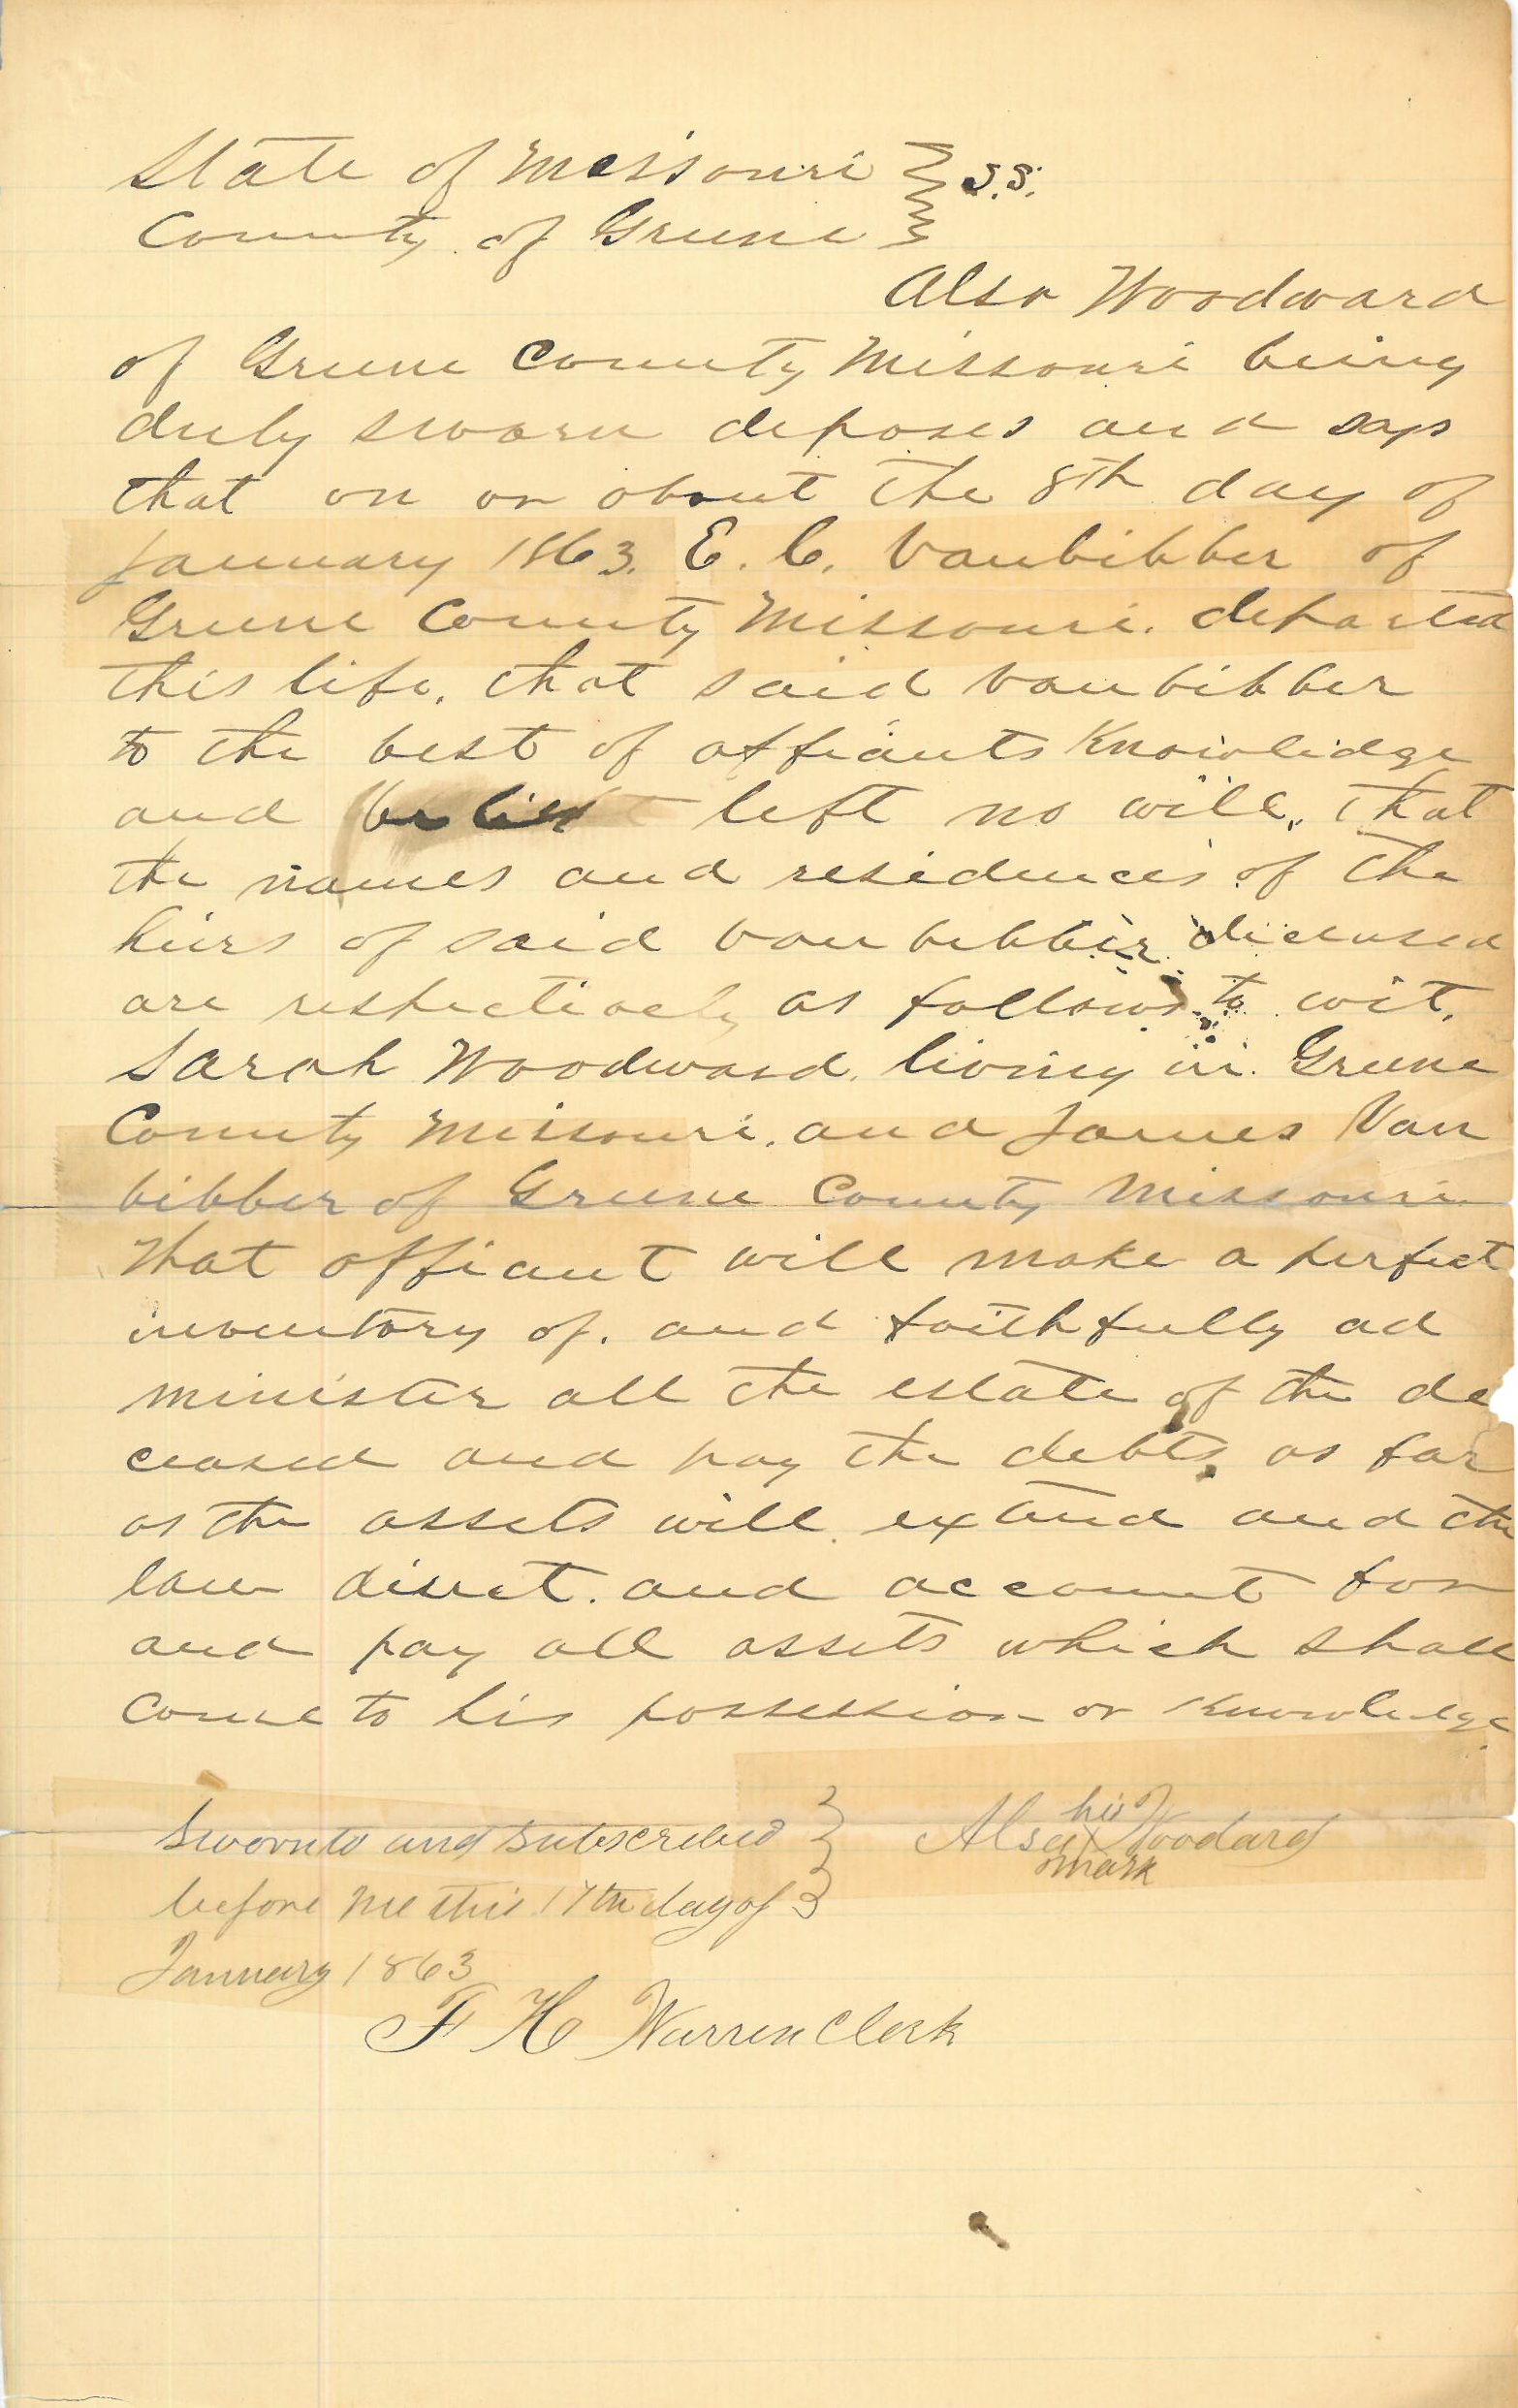 State of Missouri } S.S.
County of Greene }
Also Woodward
of Greene County Missouri being
duly sworn deposes and says
that on or about the 8th day of
January 1863. E. C. Vanbibber of
Greene County Missouri. departed
this life. that said Vanbibber
to the best of affiants Knowlidge
and left no will, that
the names and residences of the
heirs of said Vanbibber deceased
are respectively as follows to wit.
Sarah Woodward. living in Greene
County Missouri. and James Van
bibber of Greene County Missouri
That affiant will make a perfect
inventory of. and faithfully ad
minister all the estate of the de
ceased and pay the debts as far
as the assets will extend and the
law direct. and account for
and pay all assets which shall
come to his possession or knowledge
Sworn to and subscribed }
his
Alsa X Woodard
mark
before me this 17th day of }
January 1863
F H Warren Clerk